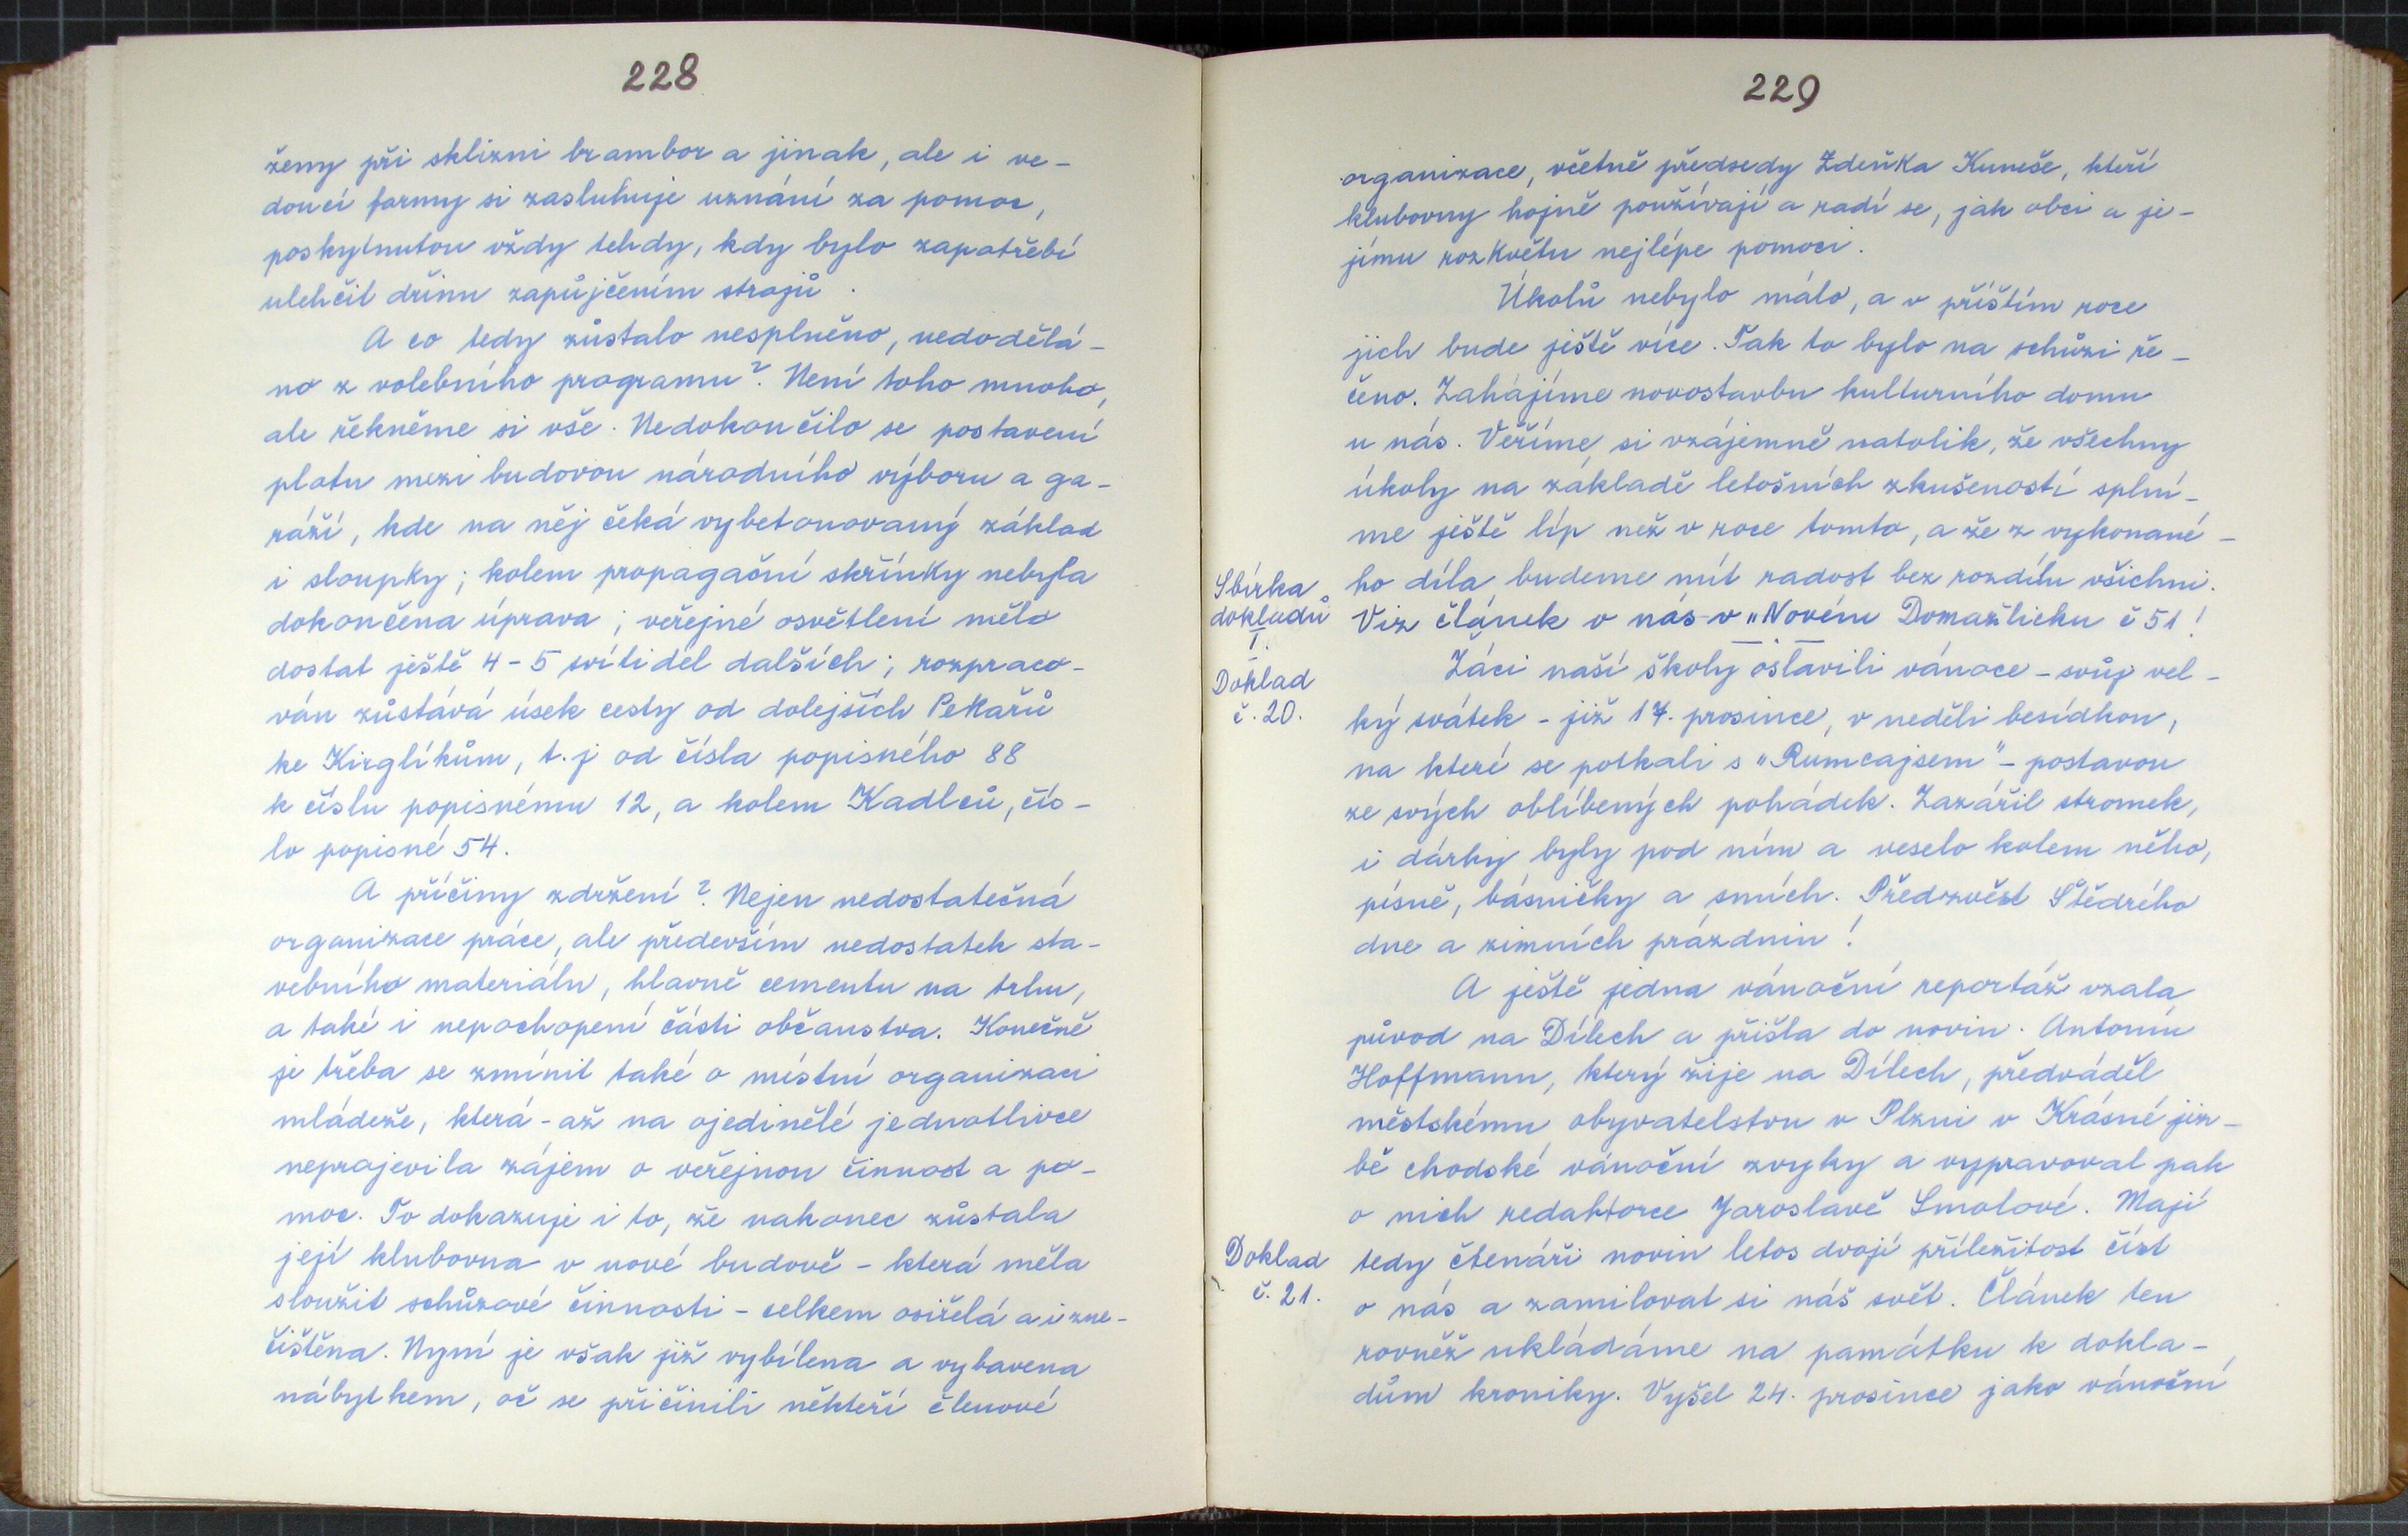 228
ženy při sklizni brambor a jinak, ale i ve-
doucí farmy si zasluhuje uznání za pomoc,
poskytnutou vždy tehdy, kdy bylo zapotřebí
ulehčit dřinu zapůjčením strojů.
A co tedy zůstalo nesplněno, nedodělá-
no z volebního programu? Není toho mnoho,
ale řekněme si vše. Nedokončilo se postavení
plotu mezi budovou národního výboru a ga-
ráží, kde na něj čeká vybetonovaný základ
i sloupky; kolem propagační skříňky nebyla
dokončena úprava; veřejné osvětlení mělo
dostat ještě 4-5 svítidel dalších; rozpraco-
ván zůstává úsek cesty od dolejších Pekařů
ke Kirglíkům, t.j od čísla popisného 88
k číslu popisnému 12, a kolem Kadlců, čís-
lo popisné 54.
A příčiny zdržení? Nejen nedostatečná
organizace práce, ale především nedostatek sta-
vebního materiálu, hlavně cementu na trhu,
a také i nepochopení části občanstva. Konečně
je třeba se zmínit také o místní organizaci
mládeže, která - až na ojedinělé jednotlivce
neprojevila zájem o veřejnou činnost a po-
moc. To dokazuje i to, že nakonec zůstala
její klubovna v nové budově - která měla
sloužit schůzové činnosti - celkem osiřelá a i zne-
čištěna. Nyní je však již vybílena a vybavena
nábytkem, oč se přičinili někteří členové
229
organizace, včetně předsedy Zdeňka Kuneše, kteří
klubovny hojně používají a radí se, jak obci a je-
jímu rozkvětu nejlépe pomoci.
Úkolů nebylo málo, a v příštím roce
jich bude ještě více. Tak to bylo na schůzi ře-
čeno. Zahájíme novostavbu kulturního domu
u nás. Věříme si vzájemně natolik, že všechny
úkoly na základě letošních zkušeností splní-
me ještě líp než v roce tomto, a že z vykonané-
ho díla budeme mít radost bez rozdílu všichni.
Viz článek o nás v „Novém Domažlicku č 51!
Sbírka
dokladů
I.
Doklad
č. 20.
Žáci naší školy oslavili vánoce - svůj vel-
ký svátek - již 17. prosince, v neděli besídkou,
na které se potkali s „Rumcajsem" - postavou
ze svých oblíbených pohádek. Zazářil stromek,
i dárky byly pod ním a veselo kolem něho,
písně, básničky a smích. Předzvěst Štědrého
dne a zimních prázdnin!
A ještě jedna vánoční reportáž vzala
původ na Dílech a přišla do novin. Antonín
Hoffmann, který žije na Dílech, předváděl
městskému obyvatelstvu v Plzni v Krásné jiz-
bě chodské vánoční zvyky a vypravoval pak
o nich redaktorce Jaroslavě Smolové. Mají
tedy čtenáři novin letos dvojí příležitost číst
Doklad
č. 21.
o nás a zamilovat si náš svět. Článek ten
rovněž ukládáme na památku k dokla-
dům kroniky. Vyšel 24. prosince jako vánoční